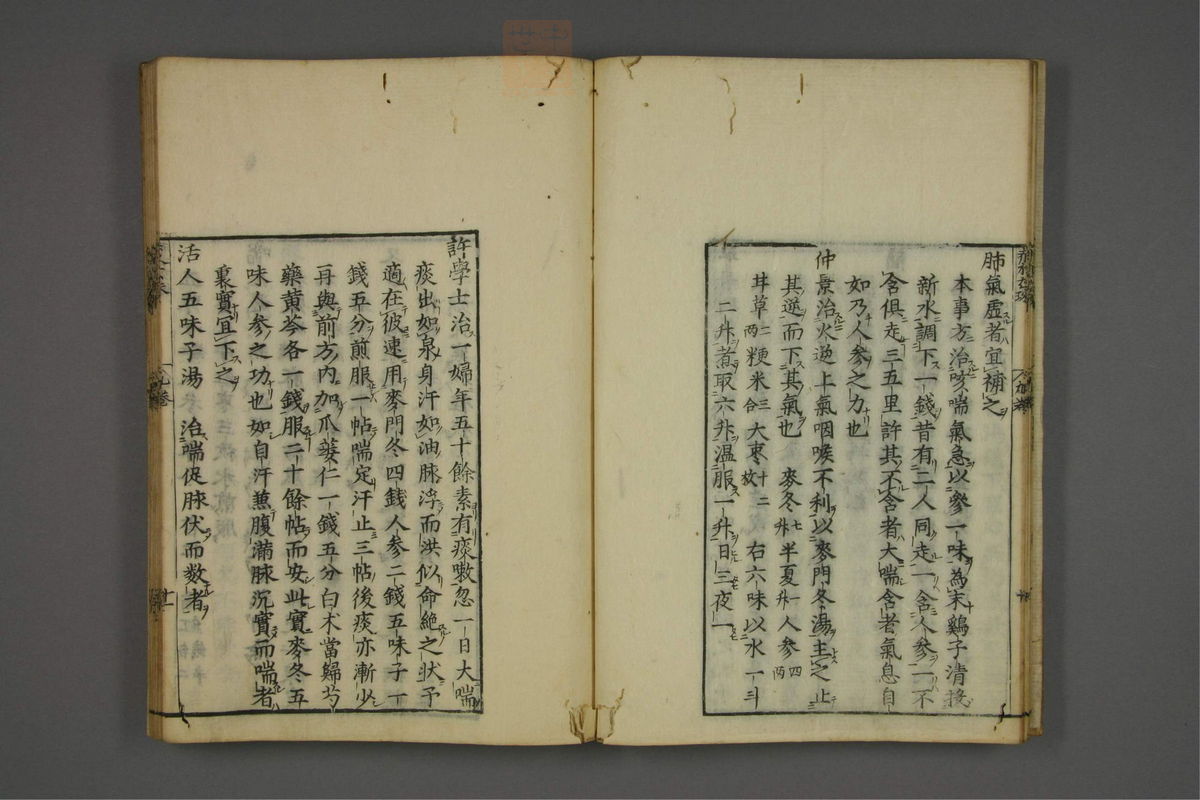 肺氣虛者宜補之
本事方治咳喘氣急以參一味為末鷄子清投
新水調下一錢昔有二人同走一含人參一不
含俱走三五里許其不含者大喘含者氣息自
如乃人參之力也
仲景治火逆上氣咽喉不利以麥門冬湯主之止
其逆而下其氣也 麥冬七升半夏一升人參四兩
甘草二兩粳米三合大棗十二枚右六味以水一斗
二升煮取六升温服一升日三夜一
許學士治一婦年五十餘素有痰嗽忽一日大喘
痰出如泉身汗如油脉浮而洪似命絶之狀予
適在彼速用麥門冬四錢人參二錢五味子一
錢五分煎服一帖喘定汗止三帖後痰亦漸少
再與前方内加瓜蔞仁一錢五分白术當歸芍
藥黄芩各一錢服二十餘帖而安此實麥冬五
味人參之功也如自汗兼腹滿脉沉實而喘者
裏實宜下之
活人五味子湯 治喘促脉伏而数者